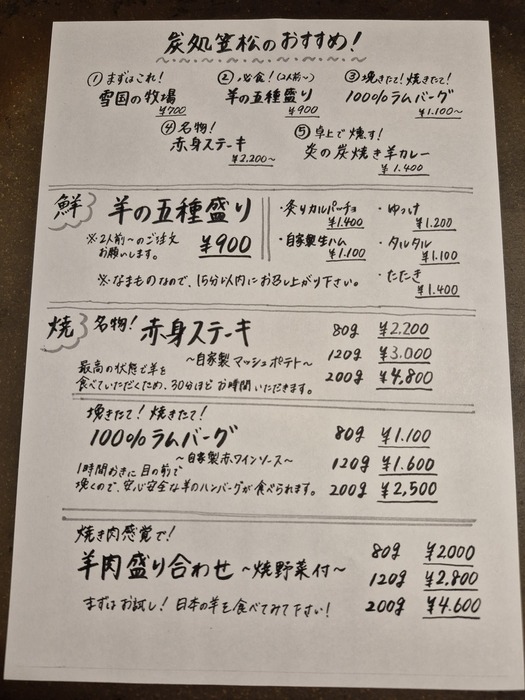 炭処笠松のおすすめ!
① まずはこれ!
雪国の牧場
¥700
② 必食!(2人前〜)
羊の五種盛り
¥900
③ 挽きたて!焼きたて!
100%ラムバーグ
¥1.100〜
④ 名物!
赤身ステーキ
¥2.200〜
⑤ 卓上で燻す!
炎の炭焼き羊カレー
¥1.400
鮮
羊の五種盛り
※2人前〜のご注文
お願いします。
¥900
・炙りカルパッチョ
¥1.400
・自家製生ハム
¥1.100
・ゆっけ
¥1.200
・タルタル
¥1.100
・たたき
¥1.400
※なまものなので、15分以内にお召し上がり下さい。
焼
名物!赤身ステーキ
〜自家製マッシュポテト〜
最高の状態で羊を
食べていただくため、30分ほどお時間いただきます。
80g ¥2.200
120g ¥3.000
200g ¥4,800
挽きたて!焼きたて!
100%ラムバーグ
〜自家製赤ワインソース〜
1時間おきに目の前で
挽くので、安心安全な羊のハンバーグが食べられます。
80g ¥1.100
120g ¥1.600
200g ¥2,500
焼き肉感覚で!
羊肉盛り合わせ〜焼野菜付〜
まずはお試し!日本の羊を食べてみて下さい!
80g ¥2000
120g ¥2.800
200g ¥4.600